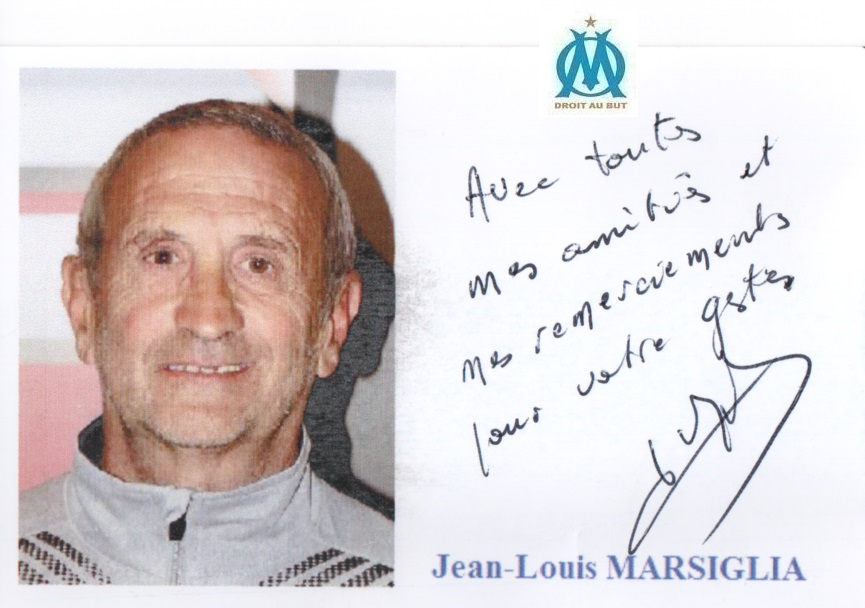 DROIT AU BUT
Avec toutes
mes amitiés et
mes remerciements
pour votre gestes
Jean-Louis MARSIGLIA